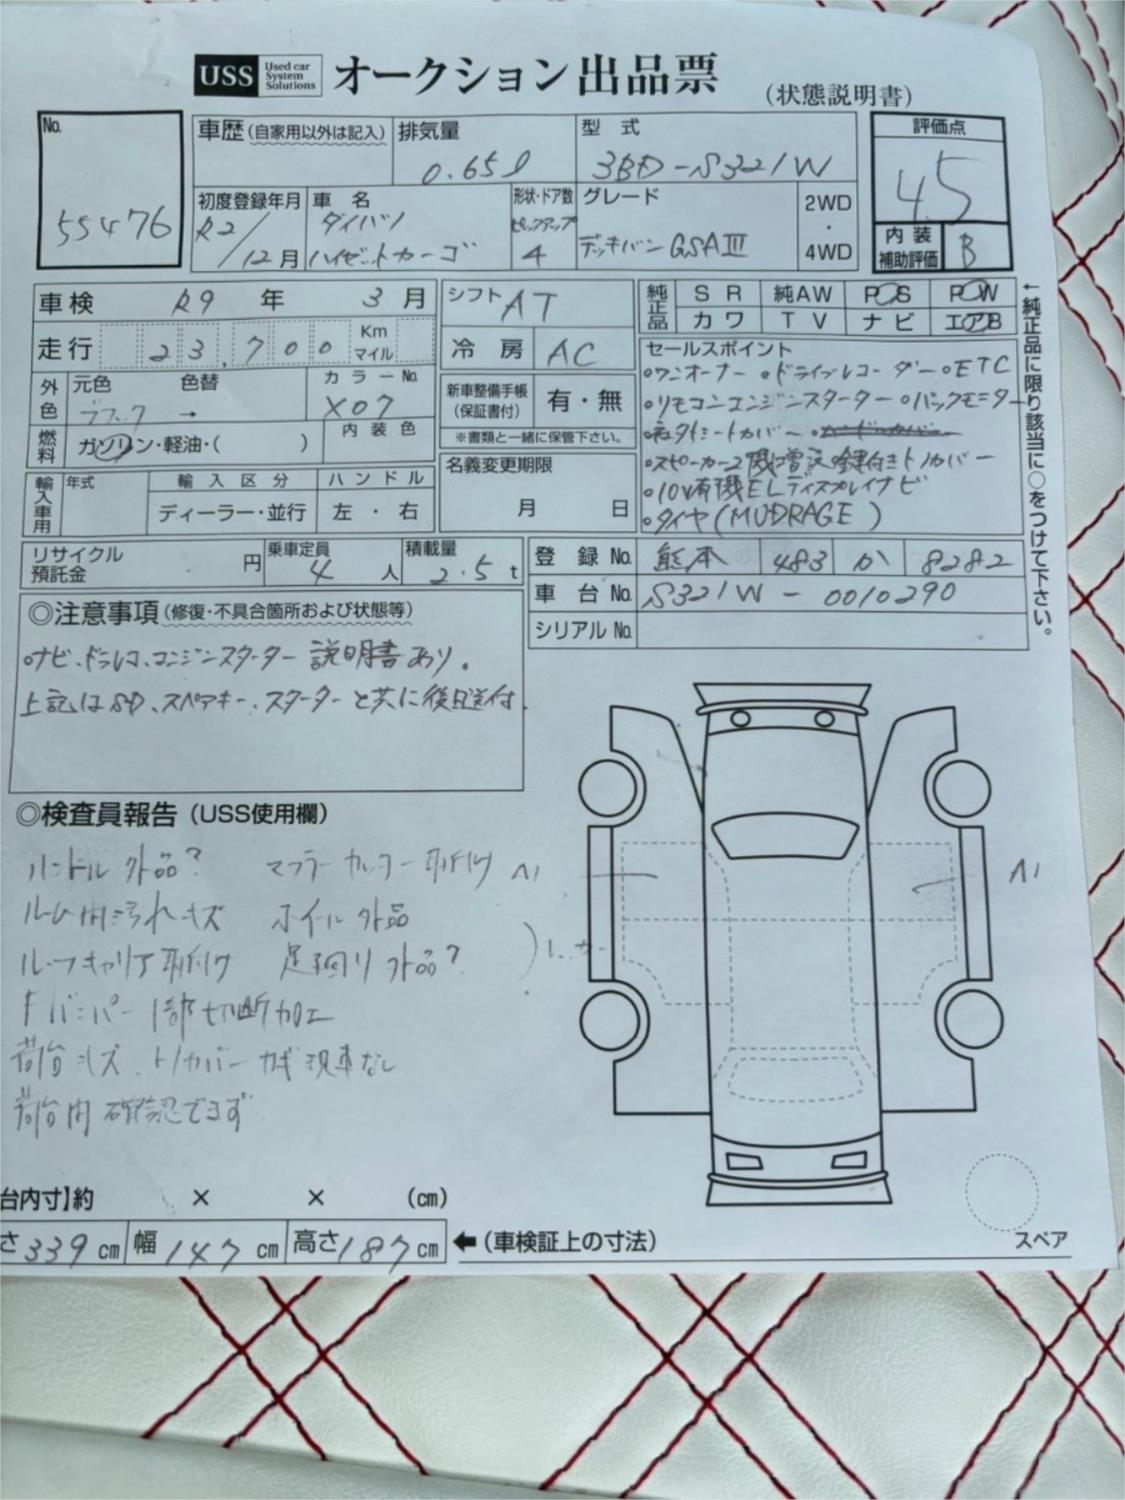 USS Used car System Solutions オークション出品票 (状態説明書)
No. 55476
車歴(自家用以外は記入)
排気量 0.65ℓ
型式 3BD-S321W
評価点 4.5
内装補助評価 B
初度登録年月 R2/12月
車名 ダイハツ ハイゼットカーゴ
形状・ドア数 ピックアップ 4
グレード デッキバン GSAⅢ
2WD・4WD
車検 R9年 3月
走行 23,700 Km マイル
シフト AT
冷房 AC
純正品 SR 純AW PS PW
カワ TV ナビ エアB
←純正品に限り該当に○をつけて下さい。
外色 元色 ブラック → 色替
カラーNo. X07
燃料 ガソリン・軽油・( )
内装色
新車整備手帳(保証書付) 有・無
※書類と一緒に保管下さい。
輸入車用 年式 輸入区分 ディーラー・並行 ハンドル 左・右
名義変更期限 月 日
セールスポイント
○ワンオーナー ○ドライブレコーダー ○ETC
○リモコンエンジンスターター ○バックモニター
シートカバー
○スピーカー2機増設 鍵付きトノカバー
○10V有機ELディスプレイナビ
○タイヤ(MUDRAGE)
リサイクル預託金 円
乗車定員 4人
積載量 2.5t
登録No. 熊本 483 か 8282
車台No. S321W-0010290
シリアルNo.
◎注意事項(修復・不具合箇所および状態等)
○ナビ、ドラレコ、エンジンスターター 説明書あり。
上記はSD、スペアキー、スターターと共に後日送付。
◎検査員報告(USS使用欄)
ハンドル外品? マフラーカッター取付け
ルーム内汚れキズ ホイル外品
ルーフキャリア取付け 足廻り外品?
Fバンパー1部切断加工
荷台キズ、トノカバーカギ現車なし
荷台内確認できず
A1
A1
台内寸】約 × × (cm)
さ339cm 幅147cm 高さ187cm ←(車検証上の寸法)
スペア